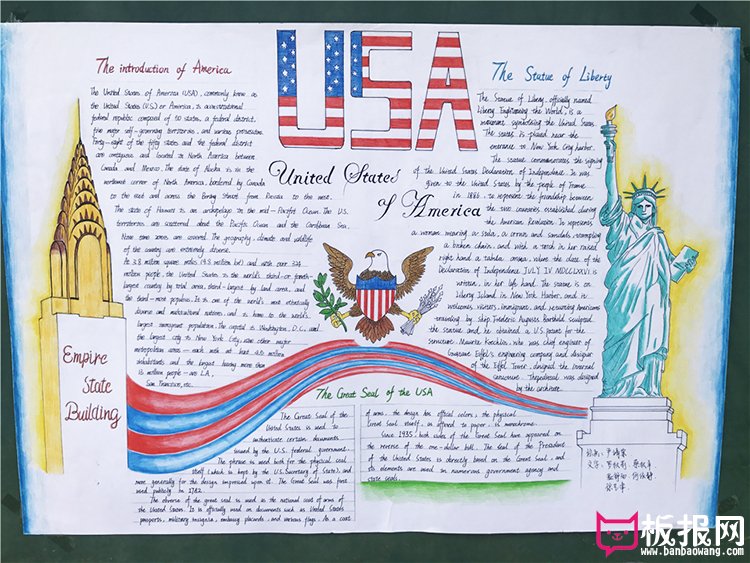 USA
United States
of America
The introduction of America
The United States of America (USA), commonly know as
the United States (U.S.) or America, is a constitutional
federal republic composed of 50 states, a federal district,
five major self-governing territories, and various possessions.
Forty-eight of the fifty states and the federal district
are contiguous and located in North America between
Canada and Mexico. The state of Alaska is in the
northwest corner of North America, bordered by Canada
to the east and across the Bering Strait from Russia to the west.
The state of Hawaii is an archipelago in the mid-Pacific Ocean. The U.S.
territories are scattered about the Pacific Ocean and the Caribbean Sea.
Nine time zones are covered. The geography, climate and wildlife
of the country are extremely diverse.
At 3.8 million square miles and with over 324
million people, the United States is the world's third- or fourth-
largest country by total area, third-largest by land area, and
the third-most populous. It is one of the world's most ethnically
diverse and multicultural nations, and is home to the world's
largest immigrant population. The capital is Washington, D.C., and
the largest city is New York City; nine other major
metropolitan areas—each with at least 4.5 million
inhabitants and the largest having more than
13 million people—are L.A.,
San Francisco, etc.
The Statue of Liberty
The Statue of Liberty, officially named
Liberty Enlightening the World, is a
monument symbolising the United States.
The statue is placed near the
entrance to New York City harbor.
The statue commemorates the signing
of the United States Declaration of Independence. It was
given to the United States by the people of France
in 1886, to represent the friendship between
the two countries established during
the American Revolution. It represents
a woman wearing a stola, a crown and sandals, trampling
a broken chain, and with a torch in her raised
right hand a tabula ansata, where the date of the
Declaration of Independence JULY IV MDCCLXXVI is
written, in her left hand. The statue is on
Liberty Island in New York Harbor, and it
welcomes visitors, immigrants, and returning Americans
traveling by ship. Frédéric Auguste Bartholdi sculpted
the statue and he obtained a U.S. patent for the
structure. Maurice Koechlin, who was chief engineer of
Gustave Eiffel's engineering company and designer
of the Eiffel Tower, designed the internal
structure. The pedestal was designed
by the architect.
Empire
State
Building
The Great Seal of the USA
The Great Seal of the
United States is used to
authenticate certain documents
issued by the U.S. federal government.
The phrase is used both for the physical seal
itself (which is kept by the U.S. Secretary of State), and
more generally for the design impressed upon it. The Great Seal was first
used publicly in 1782.
The obverse of the great seal is used as the national coat of arms of
the United States. It is officially used on documents such as United States
passports, military insignia, embassy placards, and various flags. As a coat
of arms, the design has official colors; the physical
Great Seal itself, as affixed to paper, is monochrome.
Since 1935, both sides of the Great Seal have appeared on
the reverse of the one-dollar bill. The Seal of the President
of the United States is directly based on the Great Seal, and
its elements are used in numerous government agency and
state seals.
板报网
www.banbaowang.com